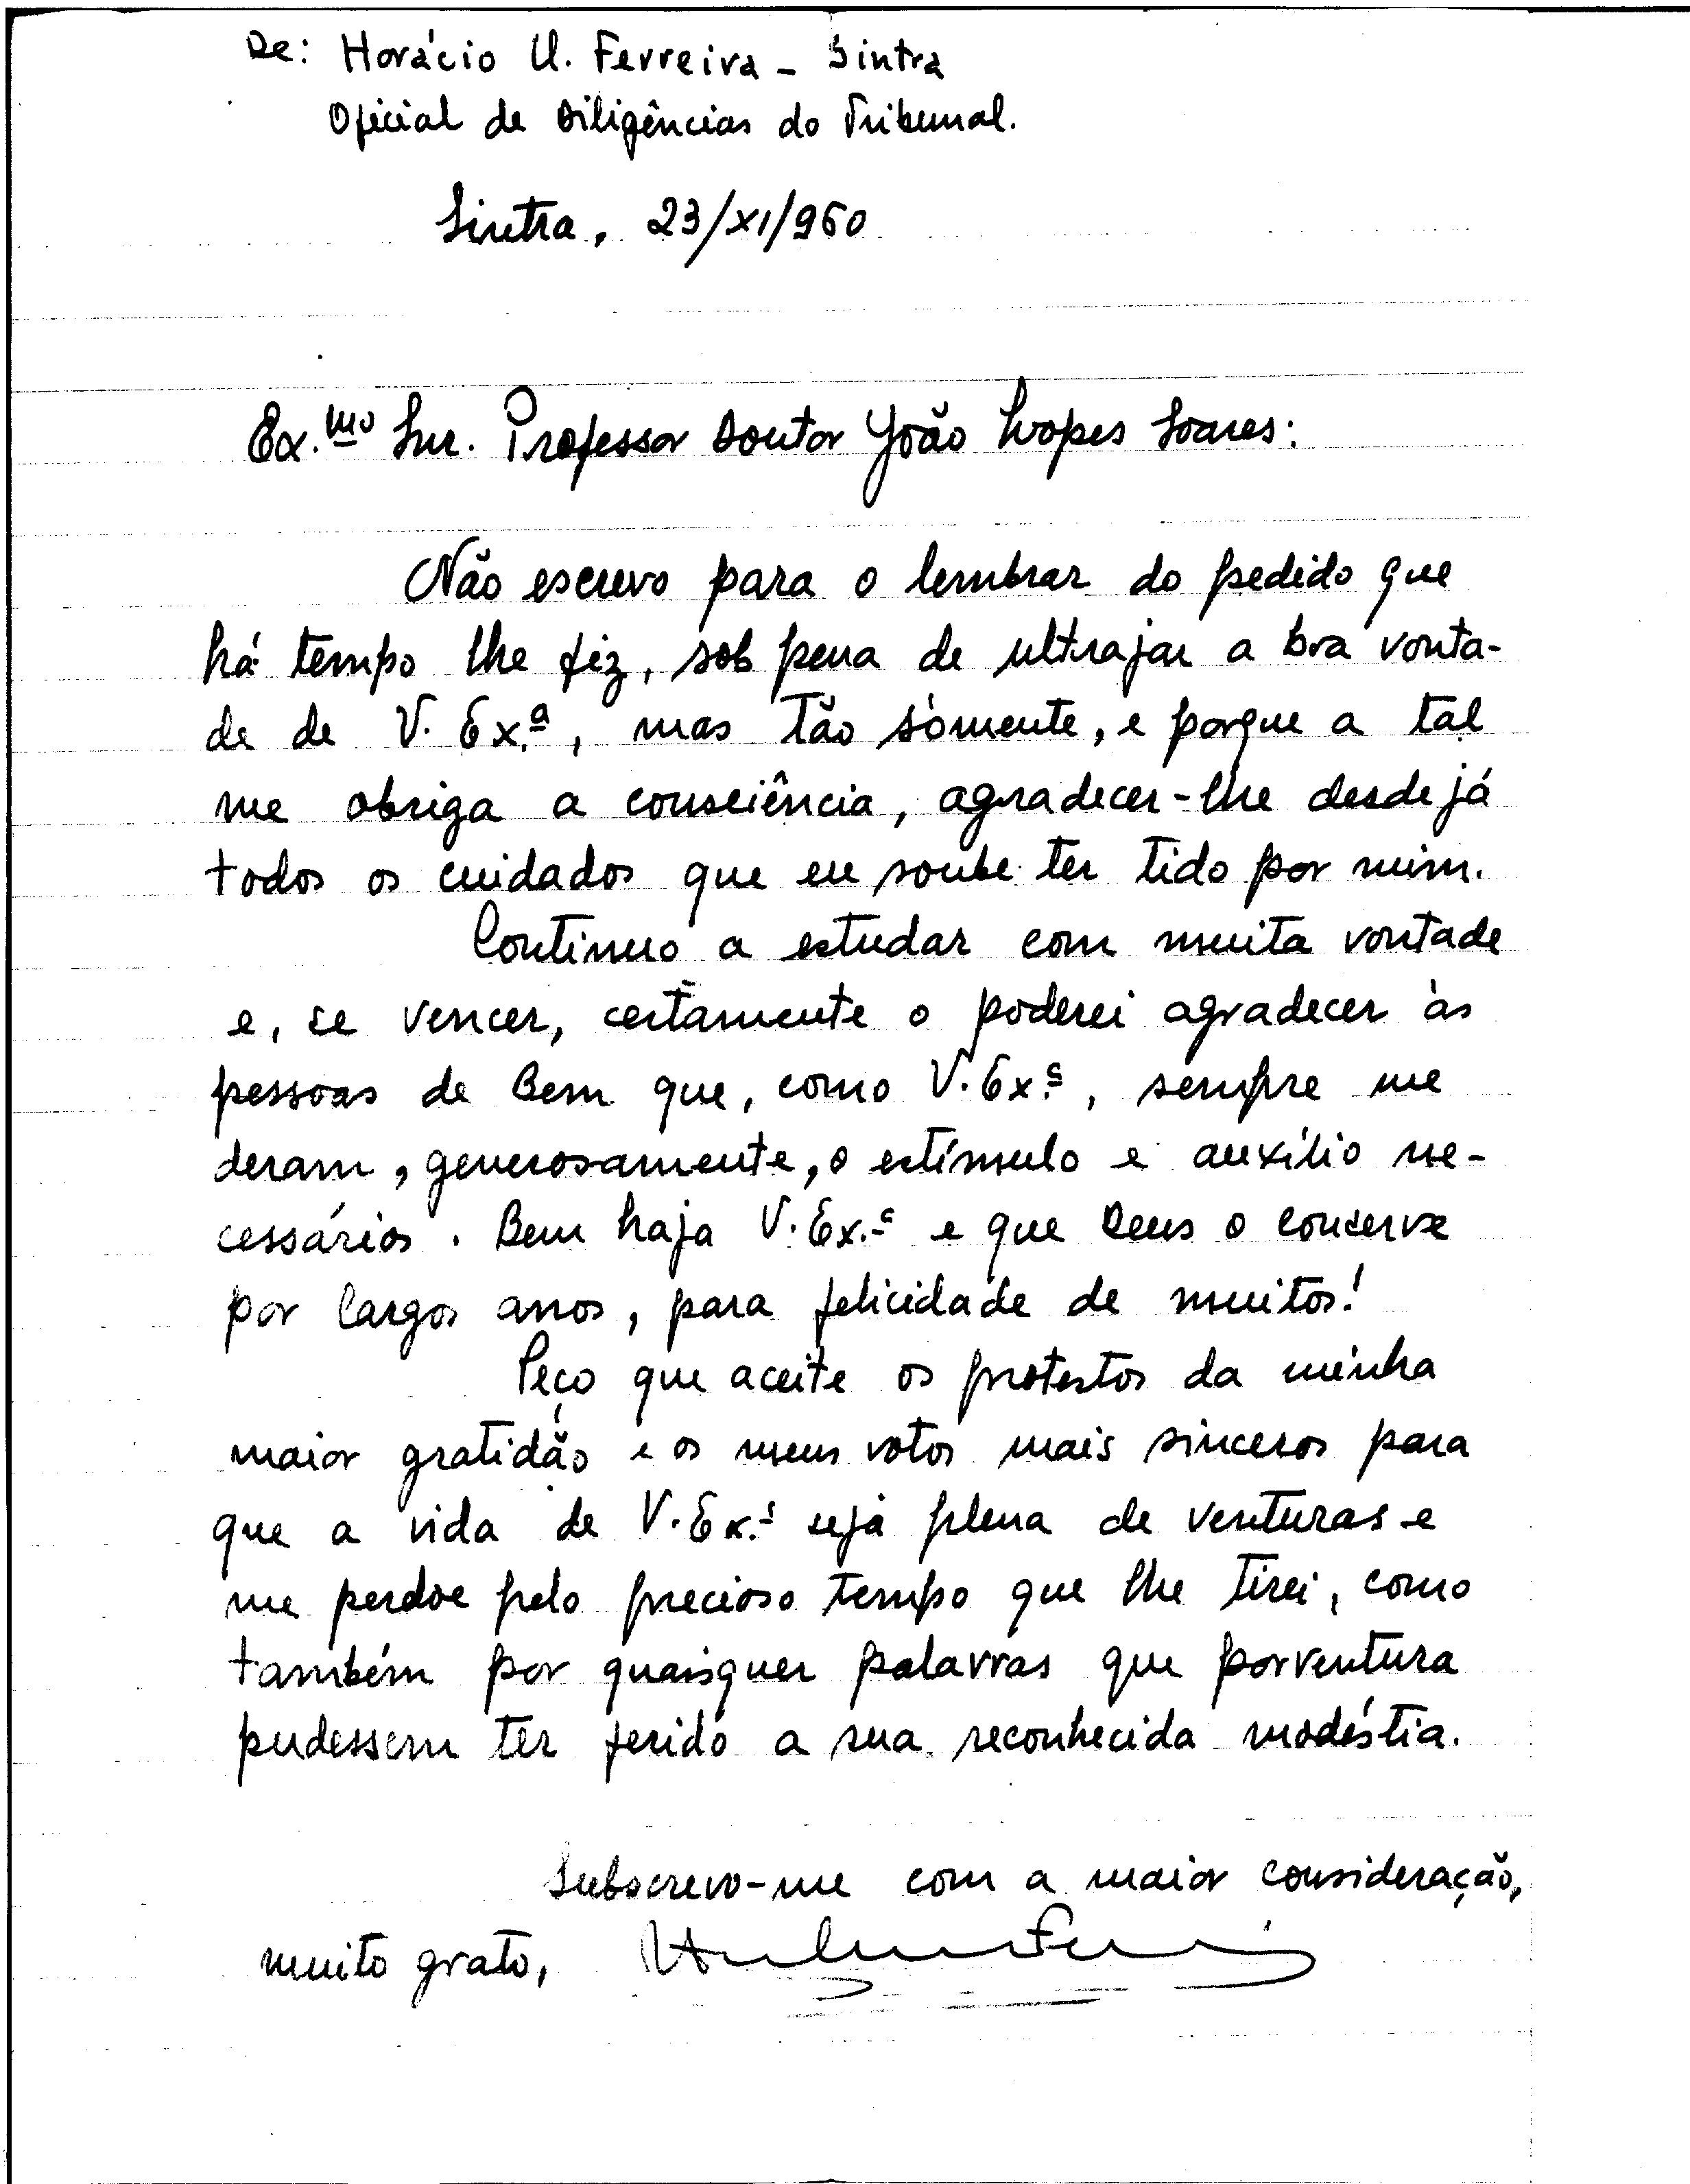 De: Horácio U. Ferreira - Sintra
Oficial de Diligências do Tribunal.
Sintra, 23/XI/960
Ex.mo Snr. Professor Doutor João Lopes Soares:
Não escrevo para o lembrar do pedido que
há tempo lhe fiz, sob pena de ultrajar a boa vonta-
de de V. Ex.ª, mas tão sòmente, e porque a tal
me obriga a consciência, agradecer-lhe desde já
todos os cuidados que eu soube ter tido por mim.
Continuo a estudar com muita vontade
e, se vencer, certamente o poderei agradecer às
pessoas de Bem que, como V. Ex.ª, sempre me
deram, generosamente, o estímulo e auxílio ne-
cessários. Bem haja V. Ex.ª e que Deus o conserve
por largos anos, para felicidade de muitos!
Peço que aceite os protestos da minha
maior gratidão e os meus votos mais sinceros para
que a vida de V. Ex.ª seja plena de venturas e
me perdoe pelo precioso tempo que lhe tirei, como
também por quaisquer palavras que porventura
pudessem ter ferido a sua reconhecida modéstia.
Subscrevo-me com a maior consideração,
muito grato,